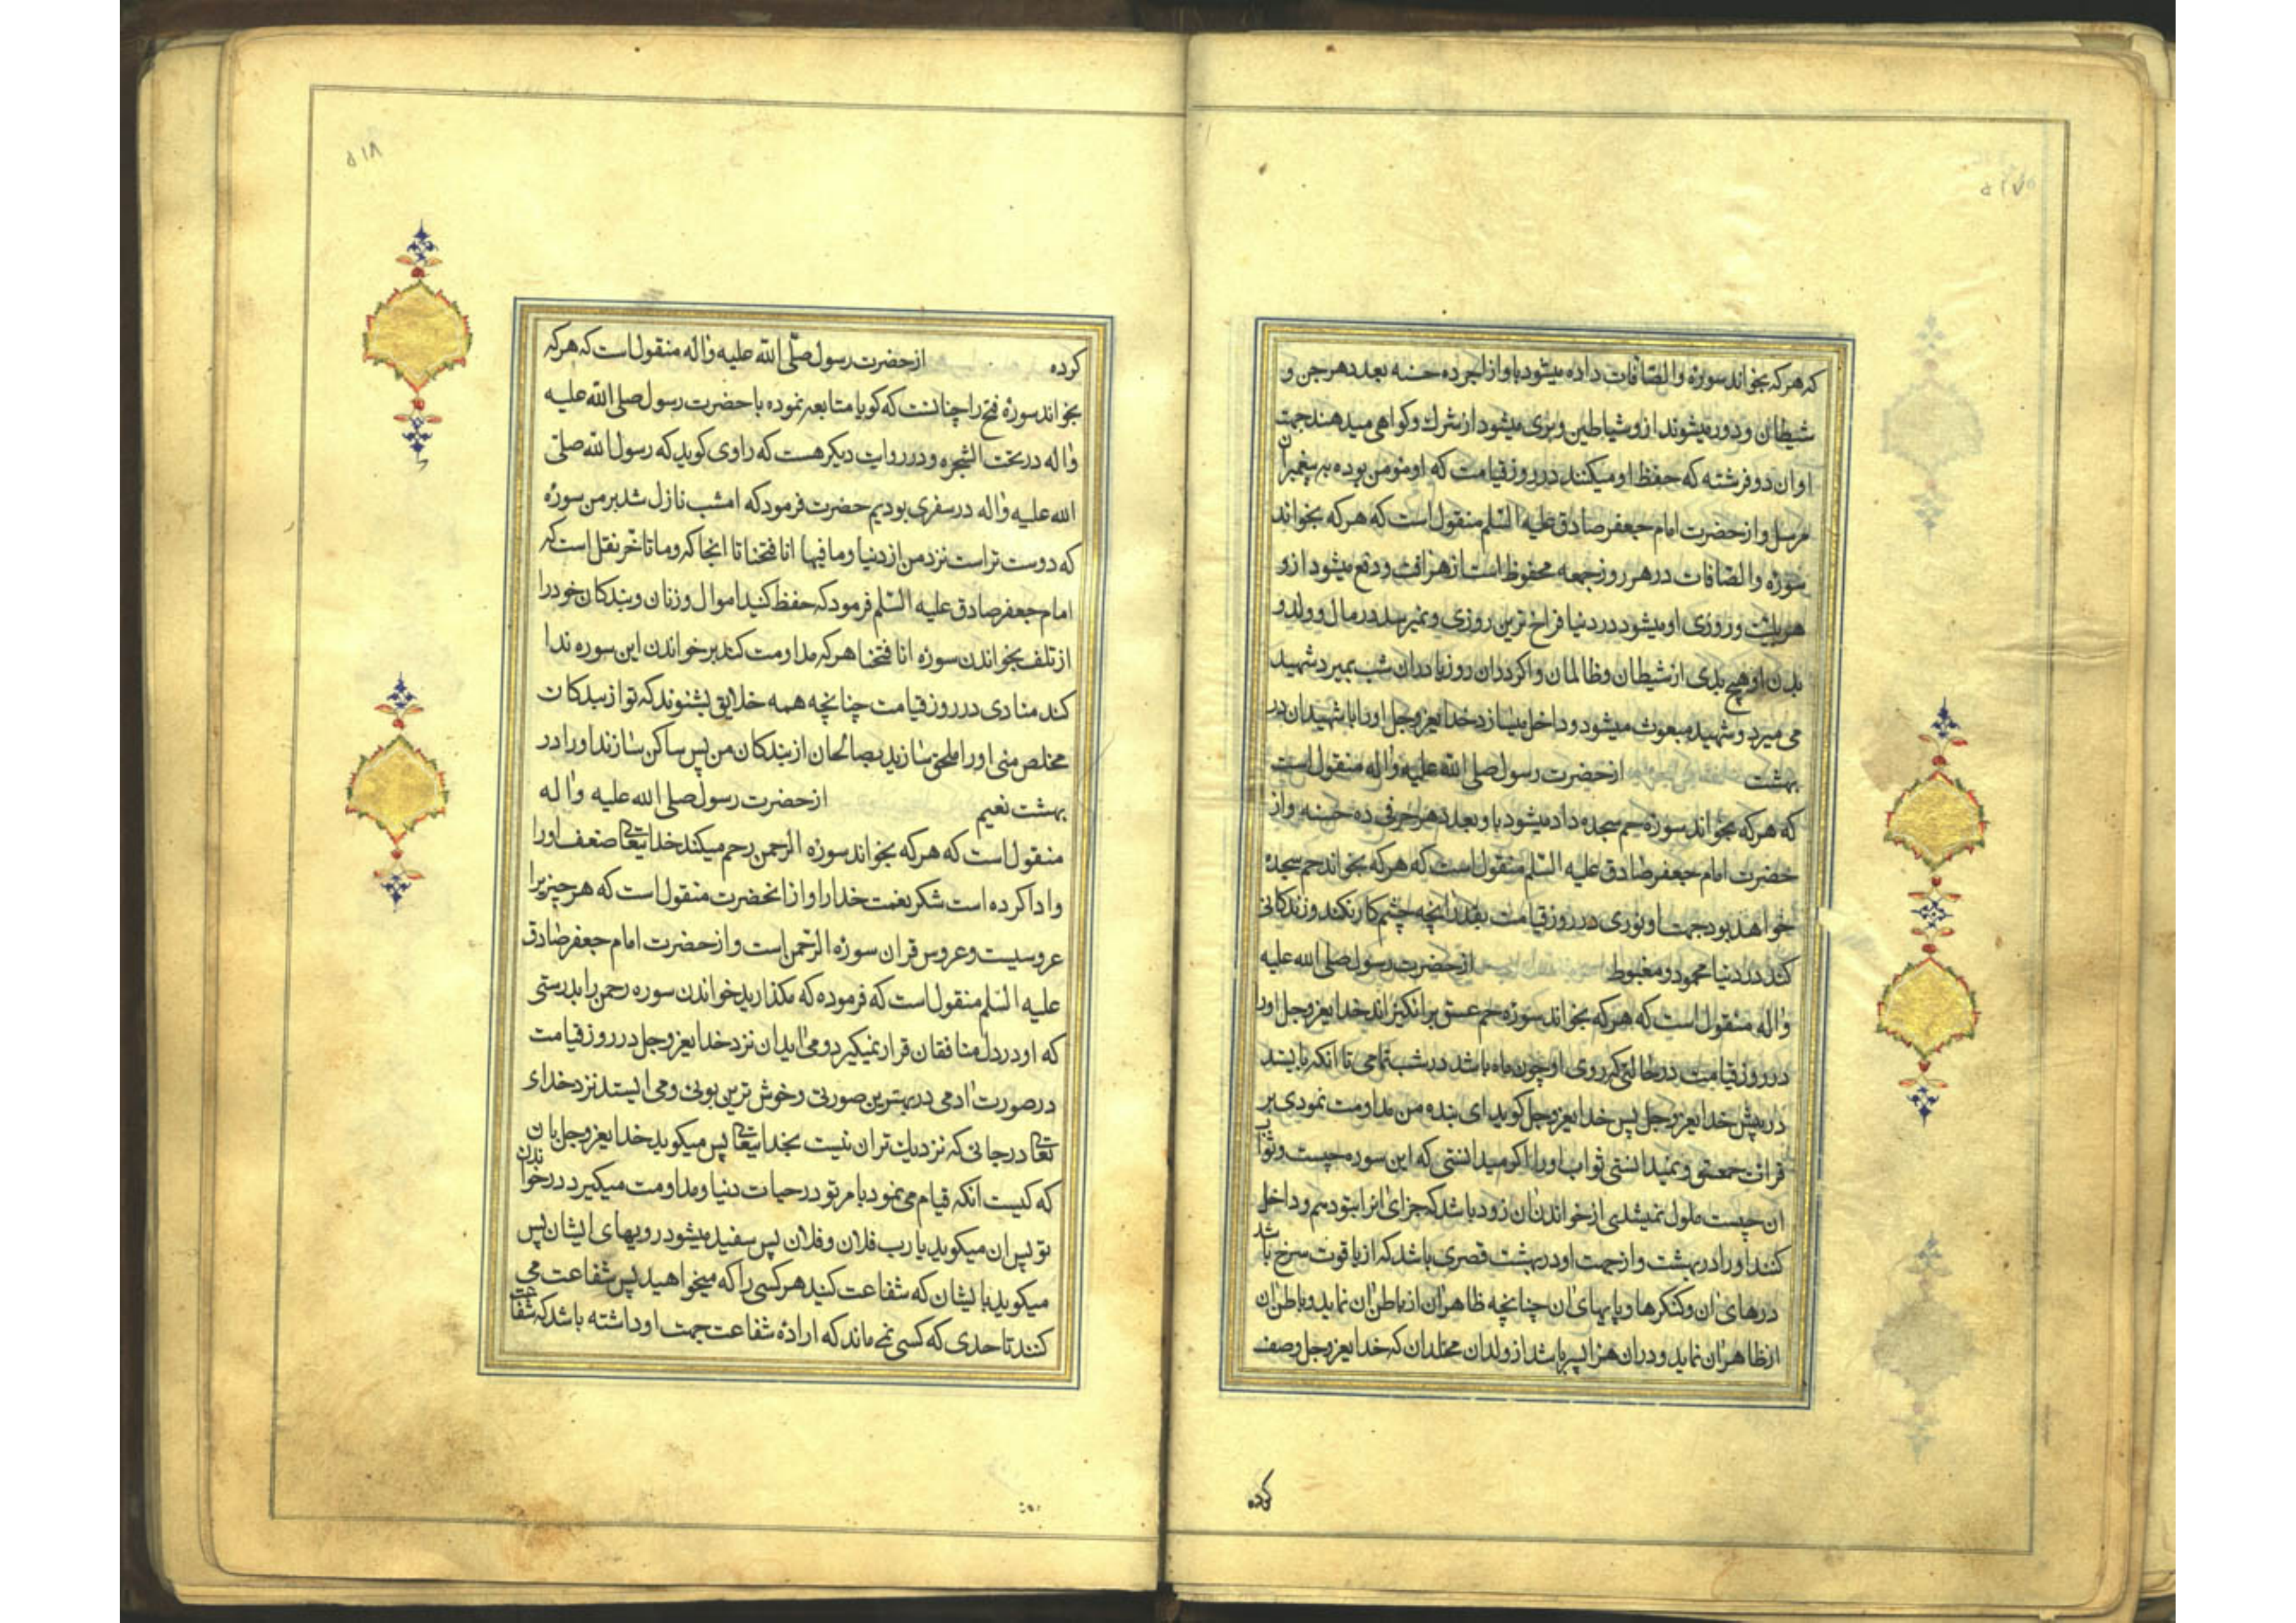 ۵۱۷
که هرکه بخواند سورهٔ والصّافات داده میشود باو از اجر ده حسنه بعدد هر جن و
شیطان و دور میشوند ازو شیاطین و بری میشود از شرك و کواهی میدهند جهت
او ان دو فرشته که حفظ او میکنند در روز قیامت که او مومن بوده به پیغمبران
مرسل و از حضرت امام جعفر صادق علیه السّلم منقول است که هرکه بخواند
سورهٔ والصّافات در هر روز جمعه محفوظ است از هر افت و دفع میشود ازو
هر بلیّت و روزی او میشود در دنیا فراخ ترین روزی و نمیرسد در مال و ولد و
بدن او هیچ بدی از شیطان و ظالمان و اکر در ان روز یا در ان شب بمیرد شهید
می میرد و شهید مبعوث میشود و داخل میسازد خدایعزوجل او را با شهیدان در
بهشت از حضرت رسول صلی الله علیه واله منقول است
که هرکه بخواند سورهٔ حم سجده داد میشود باو بعدد هر حرفی ده حسنه و از
حضرت امام جعفر صادق علیه السّلم منقول است که هرکه بخواند حم سجدهٔ
خواهد بود جهت او نوری در روز قیامت بقدر انچه چشم کار نکند و زندکانی
کند در دنیا محمود و مغبوط از حضرت رسول صلی الله علیه
واله منقول است که هرکه بخواند سورهٔ حم عسق برانکیزاند خدایعزوجل او را
در روز قیامت در حالتی که روی او چون ماه باشد در شب تمامی تا انکه بایستد
در پیش خدایعزوجل پس خدایعزوجل کوید ای بنده من مداومت نمودی بر
قرائت حمعسق و نمیدانستی ثواب او را اکر میدانستی که این سوره چیست و ثواب
ان چیست ملول نمیشدی از خواندن ان زود باشد که جزای انرا بتو دهم و داخل
کنند او را در بهشت و از جهت او در بهشت قصری باشد که از یاقوت سرخ باشد
درهای ان و کنکرها و پایهای ان چنانچه ظاهر ان از باطن ان نماید و باطن ان
از ظاهر ان نماید و در ان هزار پسر باشد از ولدان مخلدان که خدایعزوجل وصف
کرده
۵۱۸
کرده از حضرت رسول صلّی الله علیه واله منقول است که هرکه
بخواند سورهٔ فتح را چنانست که کویا متابعه نموده با حضرت رسول صلی الله علیه
واله در تحت الشجره و در روایت دیکر هست که راوی کوید که رسول الله صلی
الله علیه واله در سفری بودیم حضرت فرمود که امشب نازل شد بر من سورهٔ
که دوست تر است نزد من از دنیا و ما فیها انا فتحنا تا انجا که وما تاخر نقل است که
امام جعفر صادق علیه السّلم فرمود که حفظ کنید اموال و زنان و بندکان خود را
از تلف بخواندن سورهٔ انا فتحنا هرکه مداومت کند بر خواندن این سوره ندا
کند منادی در روز قیامت چنانچه همه خلایق بشنوند که تو از بندکان
مخلص منی او را ملحق سازید بصالحان از بندکان من پس ساکن سازند او را در
بهشت نعیم از حضرت رسول صلی الله علیه واله
منقول است که هرکه بخواند سورهٔ الرحمن رحم میکند خدایتعالی ضعف او را
و ادا کرده است شکر نعمت خدا را و از انحضرت منقول است که هر چیز یرا
عروسیست و عروس قران سورهٔ الرحمن است و از حضرت امام جعفر صادق
علیه السّلم منقول است که فرموده که مکذارید خواندن سوره رحمن را بدرستی
که او در دل منافقان قرار نمیکیرد و می اید ان نزد خدایعزوجل در روز قیامت
در صورت ادمی در بهترین صورتی و خوش ترین بوئی و می ایستد نزد خدای
تعالی در جائی که نزدیك تر ان نیست بخدایتعالی پس میکوید خدایعزوجل بان
که کیست انکه قیام می نمود بامر تو در حیات دنیا و مداومت میکیرد در خواندن
تو پس ان میکوید یا رب فلان و فلان پس سفید میشود رویهای ایشان پس
میکوید بایشان که شفاعت کنید هر کسی را که میخواهید پس شفاعت می
کنند تا حدی که کسی نمی ماند که ارادهٔ شفاعت جهت او داشته باشد که شفاعت